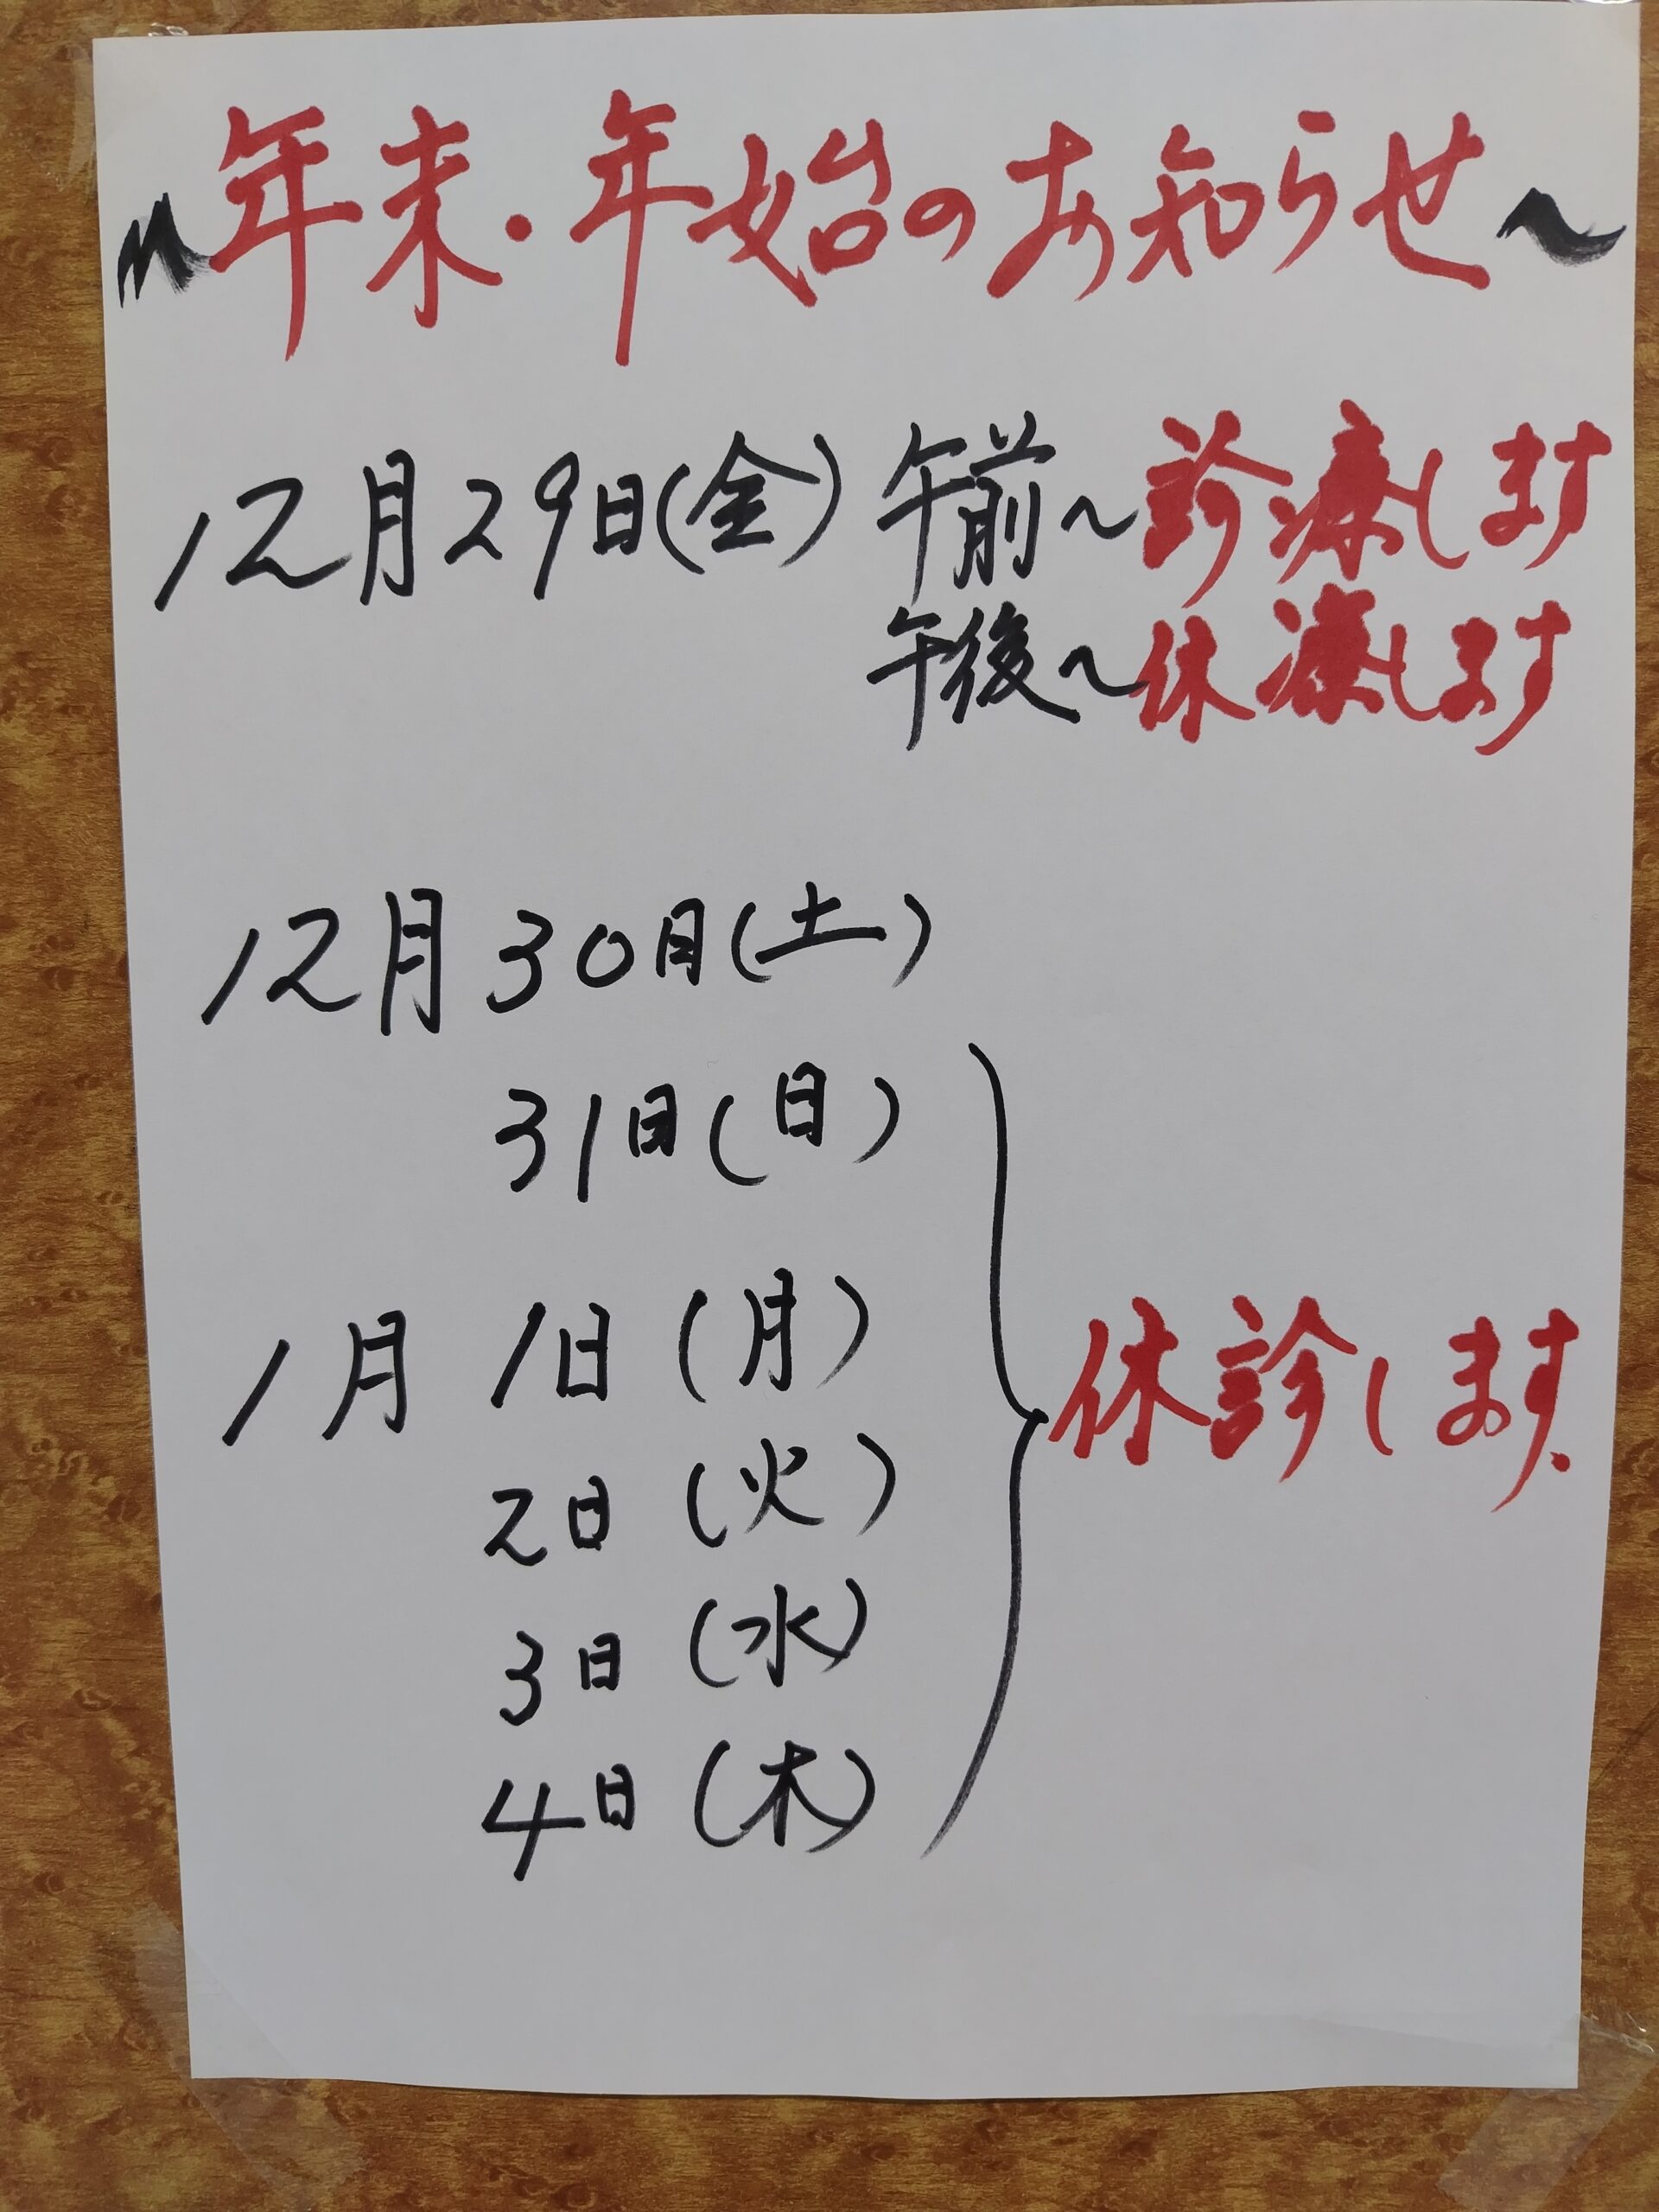 〜年末・年始のお知らせ〜
12月29日(金) 午前〜診療します
午後〜休療します
12月30日(土)
31日(日)
1月 1日(月)
2日(火)
3日(水)
4日(木)
休診します.